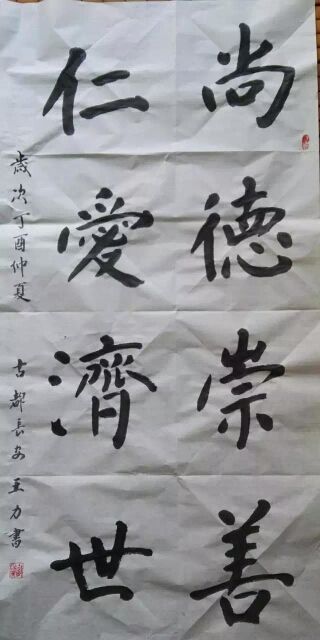 尚德崇善
仁愛濟世
歲次丁酉仲夏
古都長安王力書